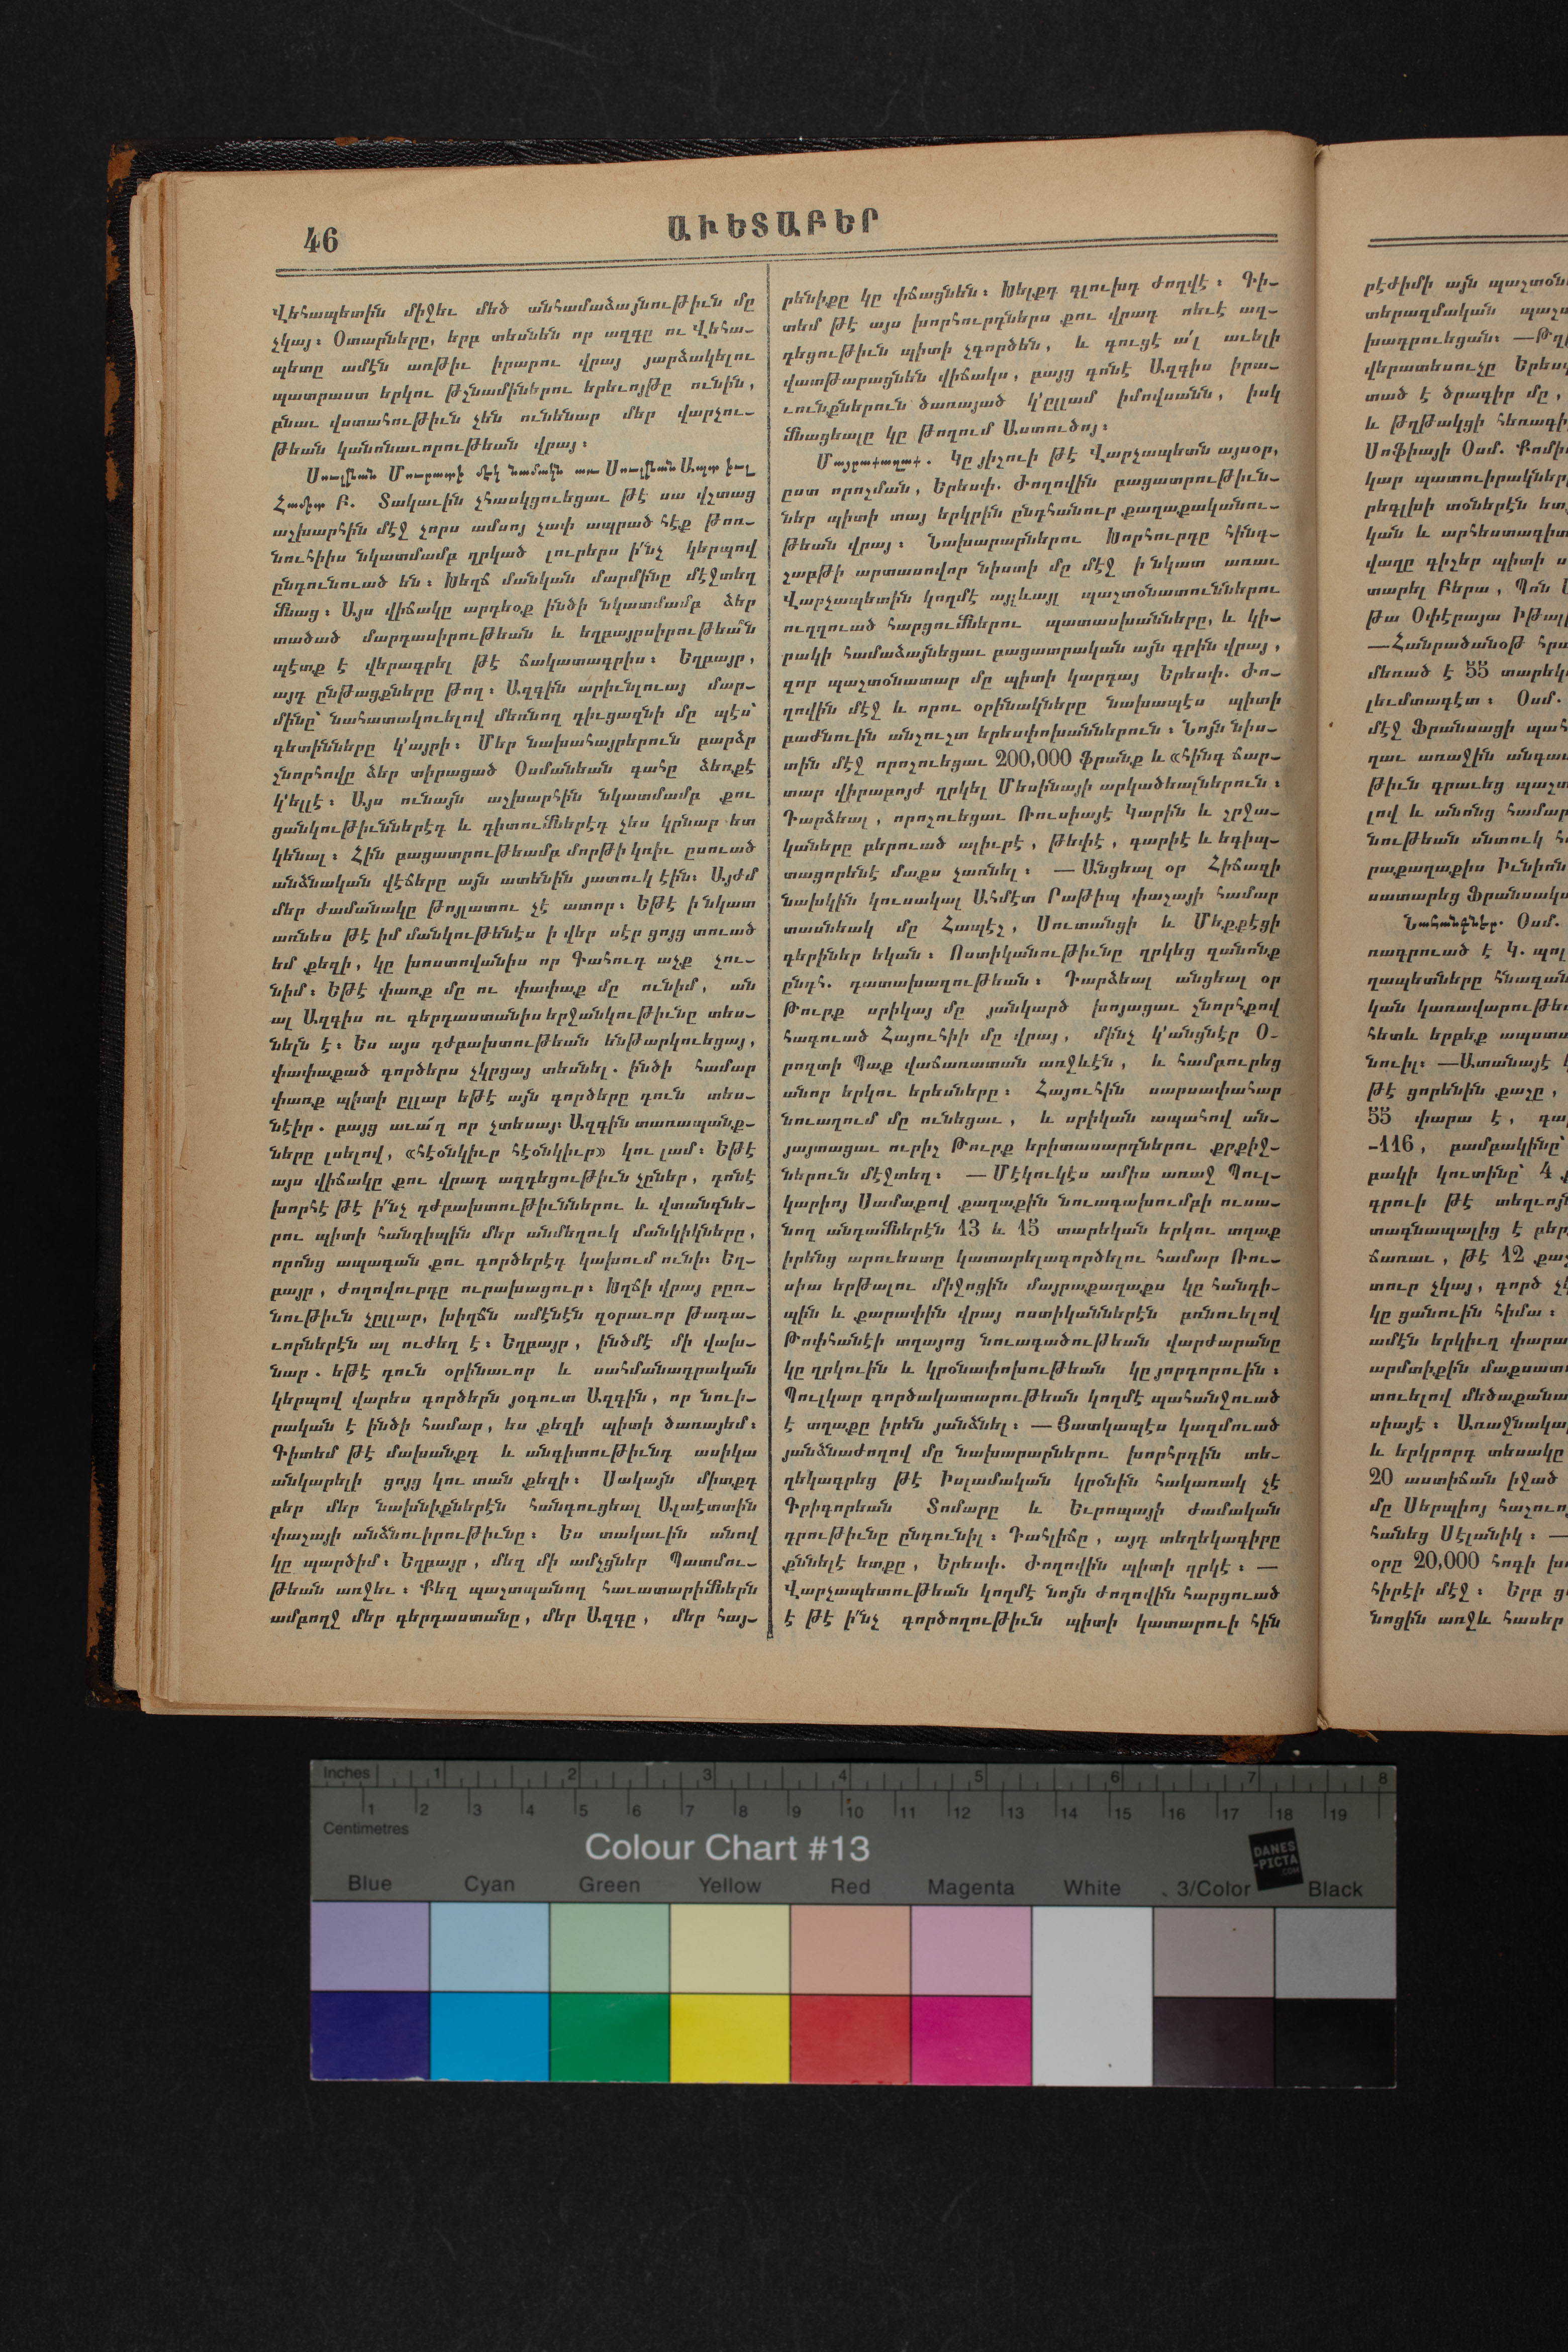 46
ԱՒԵՏԱԲԵՐ
Վեհապետին միջեւ մեծ անհամաձայնութիւն մը
չկայ։ Օտարները, երբ տեսնեն որ ազգը ու Վեհա-
պետը ամէն առթիւ իրարու վրայ յարձակելու
պատրաստ երկու թշնամիներու երեւոյթը ունին,
բնաւ վստահութիւն չեն ունենար մեր վարչու-
թեան կանոնաւորութեան վրայ։
Սուլթան Մուրատի մէկ նամակն առ Սուլթան Ապտ իւլ
Համիտ Բ. Տակաւին չհասկցուեցաւ թէ սա վշտաց
աշխարհին մէջ չորս ամսոյ չափ ապրած հէք թոռ-
նուհիիս նկատմամբ ղրկած լուրերս ի՛նչ կերպով
ընդունուած են։ Խեղճ մանկան մարմինը մէջտեղ
մնաց։ Այս վիճակը արդեօք ինծի նկատմամբ ձեր
տածած մարդասիրութեան և եղբայրսիրութեա՞ն
պէտք է վերագրել թէ ճակատագրիս։ Եղբայր,
այդ ընթացքները թող։ Ազգին արիւնլուայ մար-
մինը՝ նահատակուելով մեռնող դիւցազնի մը պէս՝
գետինները կ'այրի։ Մեր նախահայրերուն բարձր
շնորհովը ձեր տիրացած Օսմանեան գահը ձեռքէ
կ'ելլէ։ Այս ունայն աշխարհին նկատմամբ քու
ցանկութիւններէդ և դիտումներէդ չես կրնար ետ
կենալ։ Հին բացատրութեամբ մորթի կռիւ ըսուած
անձնական վէճերը այն ատենին յատուկ էին։ Այժմ
մեր ժամանակը թոյլատու չէ ատոր։ Եթէ ի նկատ
առնես թէ իմ մանկութենէս ի վեր սէր ցոյց տուած
եմ քեզի, կը խոստովանիս որ Գահուդ աչք չու-
նիմ։ Եթէ փառք մը ու փափաք մը ունիմ, ան
ալ Ազգիս ու գերդաստանիս երջանկութիւնը տես-
նելն է։ Ես այս դժբախտութեան ենթարկուեցայ,
փափաքած գործերս չկրցայ տեսնել. ինծի համար
փառք պիտի ըլլար եթէ այն գործերը դուն տես-
նէիր. բայց աւա՜ղ որ չտեսայ։ Ազգին տառապանք-
ները լսելով, «հէօնկիւր հէօնկիւր» կու լամ։ Եթէ
այս վիճակը քու վրադ ազդեցութիւն չըներ, գոնէ
խորհէ թէ ի՛նչ դժբախտութիւններու և վտանգնե-
րու պիտի հանդիպին մեր անմեղուկ մանկիկները,
որոնց ապագան քու գործերէդ կախում ունի։ Եղ-
բայր, ժողովուրդը ուրախացուր։ Խղճի վրայ բըռ-
նութիւն չըլլար, խիղճն ամէնէն զօրաւոր թագա-
ւորներէն ալ ուժեղ է։ Եղբայր, ինձմէ մի վախ-
նար. եթէ դուն օրինաւոր և սահմանադրական
կերպով վարես գործերն յօգուտ Ազգին, որ նուի-
րական է ինծի համար, ես քեզի պիտի ծառայեմ։
Գիտեմ թէ մախանքդ և անգիտութիւնդ ասիկա
անկարելի ցոյց կու տան քեզի։ Սակայն միտքդ
բեր մեր նախնիքներէն հանգուցեալ Ալաէտտին
փաշայի անձնուիրութիւնը։ Ես տակաւին անով
կը պարծիմ։ Եղբայր, մեզ մի ամչցներ Պատմու-
թեան առջեւ։ Քեզ պաշտպանող հաւատարիմներն
ամբողջ մեր գերդաստանը, մեր Ազգը, մեր հայ-
րենիքը կը փճացնեն։ Խելքդ գլուխդ ժողվէ։ Գի-
տեմ թէ այս խորհուրդներս քու վրադ ոեւէ ազ-
դեցութիւն պիտի չգործեն, և գուցէ ա՛լ աւելի
վատթարացնեն վիճակս, բայց գոնէ Ազգիս իրա-
ւունքներուն ծառայած կ'ըլլամ իմովսանն, իսկ
մնացեալը կը թողում Աստուծոյ։
Մայրաքաղաք. Կը յիշուի թէ Վարչապետն այսօր,
ըստ որոշման, Երեսփ. Ժողովին բացատրութիւն-
ներ պիտի տայ երկրին ընդհանուր քաղաքականու-
թեան վրայ։ Նախարարներու Խորհուրդը հինգ-
շաբթի արտասովոր նիստի մը մէջ ի նկատ առաւ
Վարչապետին կողմէ այլևայլ պաշտօնատուններու
ուղղուած հարցումներու պատասխանները, և կի-
րակի համաձայնեցաւ բացատրական այն գրին վրայ,
զոր պաշտօնատար մը պիտի կարդայ Երեսփ. Ժո-
ղովին մէջ և որու օրինակները նախապէս պիտի
բաժնուին անշուշտ երեսփոխաններուն։ Նոյն նիս-
տին մէջ որոշուեցաւ 200,000 ֆրանք և «հինգ ճար-
տար վիրաբոյժ ղրկել Մեսինայի արկածեալներուն։
Դարձեալ, որոշուեցաւ Ռուսիայէ Կարին և շրջա-
կաները բերուած ալիւրէ, թեփէ, գարիէ և եգիպ-
տացորենէ մաքս չառնել։ — Անցեալ օր Հիճազի
նախկին կուսակալ Ահմէտ Րաթիպ փաշայի համար
տասնեակ մը Հապէշ, Սուտանցի և Մեքքէցի
գերիներ եկան։ Ոստիկանութիւնը ղրկեց զանոնք
ընդհ. դատախազութեան։ Դարձեալ անցեալ օր
Թուրք սրիկայ մը յանկարծ խոյացաւ շնորհքով
հագուած Հայուհիի մը վրայ, մինչ կ'անցնէր Օ-
րոզտի Պաք վաճառատան առջևէն, և համբուրեց
անոր երկու երեսները։ Հայուհին սարսափահար
նուաղում մը ունեցաւ, և սրիկան ապահով ան-
յայտացաւ ուրիշ Թուրք երիտասարդներու քրքիջ-
ներուն մէջտեղ։ — Մէկուկէս ամիս առաջ Պուլ-
կարիոյ Սամաքով քաղաքին նուագախումբի ուսա-
նող անդամներէն 13 և 15 տարեկան երկու տղաք
իրենց արուեստը կատարելագործելու համար Ռու-
սիա երթալու միջոցին մայրաքաղաքս կը հանդի-
պին և քարափին վրայ ոստիկաններէն բռնուելով
Թոփհանէի տղայոց նուագածութեան վարժարանը
կը ղրկուին և կրօնափոխութեան կը յորդորուին։
Պուլկար գործակատարութեան կողմէ պահանջուած
է տղաքը իրեն յանձնել։ — Յատկապէս կազմուած
յանձնաժողով մը նախարարներու խորհրդին տե-
ղեկագրեց թէ Իսլամական կրօնին հակառակ չէ
Գրիգորեան Տոմարը և Եւրոպայի ժամական
դրութիւնը ընդունիլ։ Դահլիճը, այդ տեղեկագիրը
քննելէ ետքը, Երեսփ. Ժողովին պիտի ղրկէ։ —
Վարչապետութեան կողմէ նոյն ժողովին հարցուած
է թէ ի՛նչ գործողութիւն պիտի կատարուի հին
րէժիմի այն պաշտօն
տերազմական
խադրուեցան։
վերատեսուչը
տած է ծրագիր մը,
և Թղթակցի հեռագի
Սոֆիայի Օսմ.
կար
րեգլխի տօներէն
կան և
վաղը գիշեր պիտի
տարել Բերա, Պոն
թա Օփէրայա
—Հանրածանօթ
մեռած է 55
լեւմտագէտ։ Օսմ.
մէջ Ֆրանսացի
ղաւ առաջին
թիւն գրաւեց
լով և անոնց համար
նութեան սնտուկ
րաքաղաքիս
սատարեց
Նահանգներ. Օսմ.
ռագրուած է Կ.
ղապետները
կան
հետև երբեք
նուիլ։ —Ատանայէ
թէ ցորենին քաշը,
55 փարա է,
-116, բամբակինը՝
բակի կուտինը՝ 4
գրուի թէ
տագնապալից է
ճառաւ, թէ 12
տուր չկայ, գործ
կը ցանուին հիմա։
ամէն երկիւղ
արմտիքին
տուելով
սիայէ։
և երկրորդ տեսակը
20 աստիճան իջած
մը Սերպիոյ
հանեց Սէլանիկ։ —
օրը 20,000 հոգի
հիրէի մէջ։ Երբ
նոցին առջև
Inches 1 2 3 4 5 6 7 8
1 2 3 4 5 6 7 8 9 10 11 12 13 14 15 16 17 18 19
Centimetres
Colour Chart #13
DANES
-PICTA
.COM
Blue Cyan Green Yellow Red Magenta White 3/Color Black